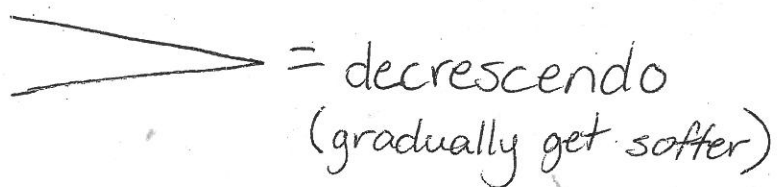 = decrescendo
(gradually get softer)